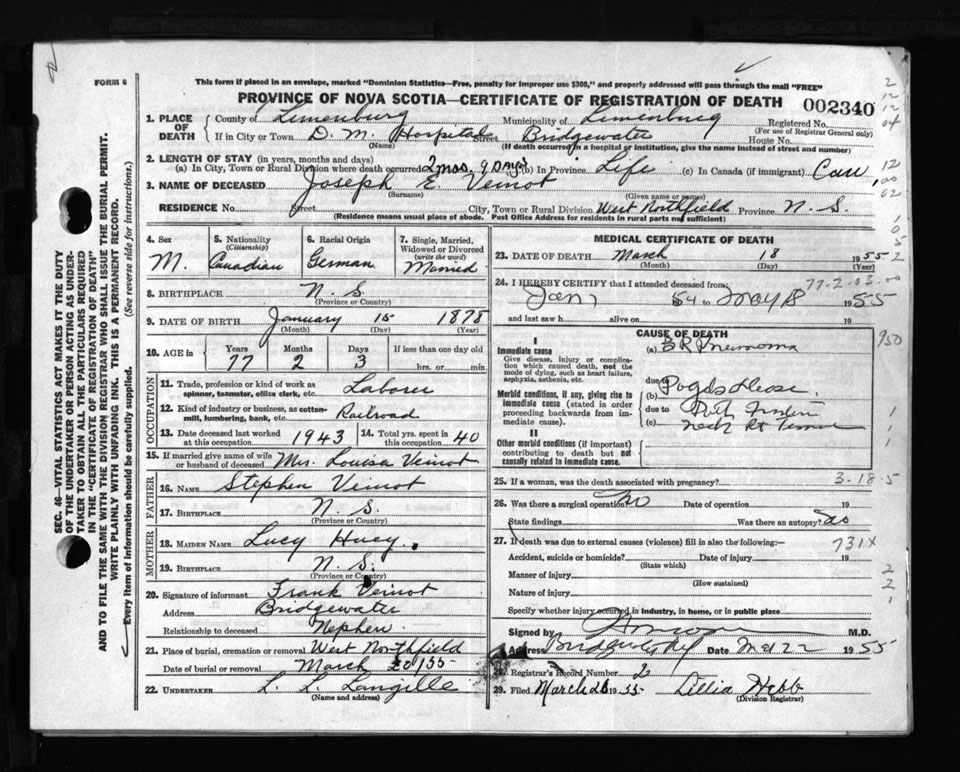 FORM 6
This form if placed in an envelope, marked "Dominion Statistics—Free, penalty for improper use $300," and properly addressed will pass through the mail "FREE"
PROVINCE OF NOVA SCOTIA—CERTIFICATE OF REGISTRATION OF DEATH 002340
1. PLACE OF DEATH
County of Lunenburg Municipality of Lunenburg Registered No.
(For use of Registrar General only)
If in City or Town D. M. Hospital Street Bridgewater House No.
(Name) (If death occurred in a hospital or institution, give the name instead of street and number)
2. LENGTH OF STAY (in years, months and days)
(a) In City, Town or Rural Division where death occurred 2 mos. 9 Days (b) In Province Life (c) In Canada (if immigrant) Can
3. NAME OF DECEASED Joseph E. Veinot
(Surname) (Given name or names)
RESIDENCE No. Street City, Town or Rural Division West Northfield Province N. S.
(Residence means usual place of abode. Post Office Address for residents in rural parts not sufficient)
4. Sex M.
5. Nationality (Citizenship) Canadian
6. Racial Origin German
7. Single, Married, Widowed or Divorced (write the word) Married
8. BIRTHPLACE N. S.
(Province or Country)
9. DATE OF BIRTH January 15 1878
(Month) (Day) (Year)
10. AGE in Years 77 Months 2 Days 3 If less than one day old
hrs. or min.
OCCUPATION
11. Trade, profession or kind of work as spinner, teamster, office clerk, etc. Laborer
12. Kind of industry or business, as cotton-mill, lumbering, bank, etc. Railroad
13. Date deceased last worked at this occupation 1943
14. Total yrs. spent in this occupation 40
15. If married give name of wife or husband of deceased Mrs. Louisa Veinot
FATHER
16. NAME Stephen Veinot
17. BIRTHPLACE N. S.
(Province or Country)
MOTHER
18. MAIDEN NAME Lucy Huey
19. BIRTHPLACE N. S.
(Province or Country)
20. Signature of informant Frank Veinot
Address Bridgewater
Relationship to deceased Nephew
21. Place of burial, cremation or removal West Northfield
Date of burial or removal March 20/55
22. UNDERTAKER L. L. Langille
(Name and address)
MEDICAL CERTIFICATE OF DEATH
23. DATE OF DEATH March 18 1955
(Month) (Day) (Year)
24. I HEREBY CERTIFY that I attended deceased from: 77-2-03-00
Jan 54 to 18 1955
and last saw h alive on 19
CAUSE OF DEATH
I
Immediate cause (a)
Give disease, injury or complication which caused death, not the mode of dying, such as heart failure, asphyxia, asthenia, etc.
due to
Morbid conditions, if any, giving rise to immediate cause (stated in order proceeding backwards from immediate cause). (b)
due to
(c) neck Rt
II
Other morbid conditions (if important) contributing to death but not causally related to immediate cause.
950
25. If a woman, was the death associated with pregnancy? 3-18-5
26. Was there a surgical operation? No Date of operation
State findings Was there an autopsy? No
27. If death was due to external causes (violence) fill in also the following:— 731X
Accident, suicide or homicide? Date of injury 19
(State which)
Manner of injury
(How sustained)
Nature of injury
Specify whether injury occurred in industry, in home, or in public place
Signed by M.D.
Address Bridgewater Date Mar 22 1955
28. Registrar's Record Number 2
29. Filed March 26 1955 Lillia Hebb
(Division Registrar)
SEC. 46—VITAL STATISTICS ACT MAKES IT THE DUTY OF THE UNDERTAKER OR PERSON ACTING AS UNDERTAKER TO OBTAIN ALL THE PARTICULARS REQUIRED IN THE "CERTIFICATE OF REGISTRATION OF DEATH"
AND TO FILE THE SAME WITH THE DIVISION REGISTRAR WHO SHALL ISSUE THE BURIAL PERMIT.
WRITE PLAINLY WITH UNFADING INK. THIS IS A PERMANENT RECORD.
Every item of information should be carefully supplied. (See reverse side for instructions.)